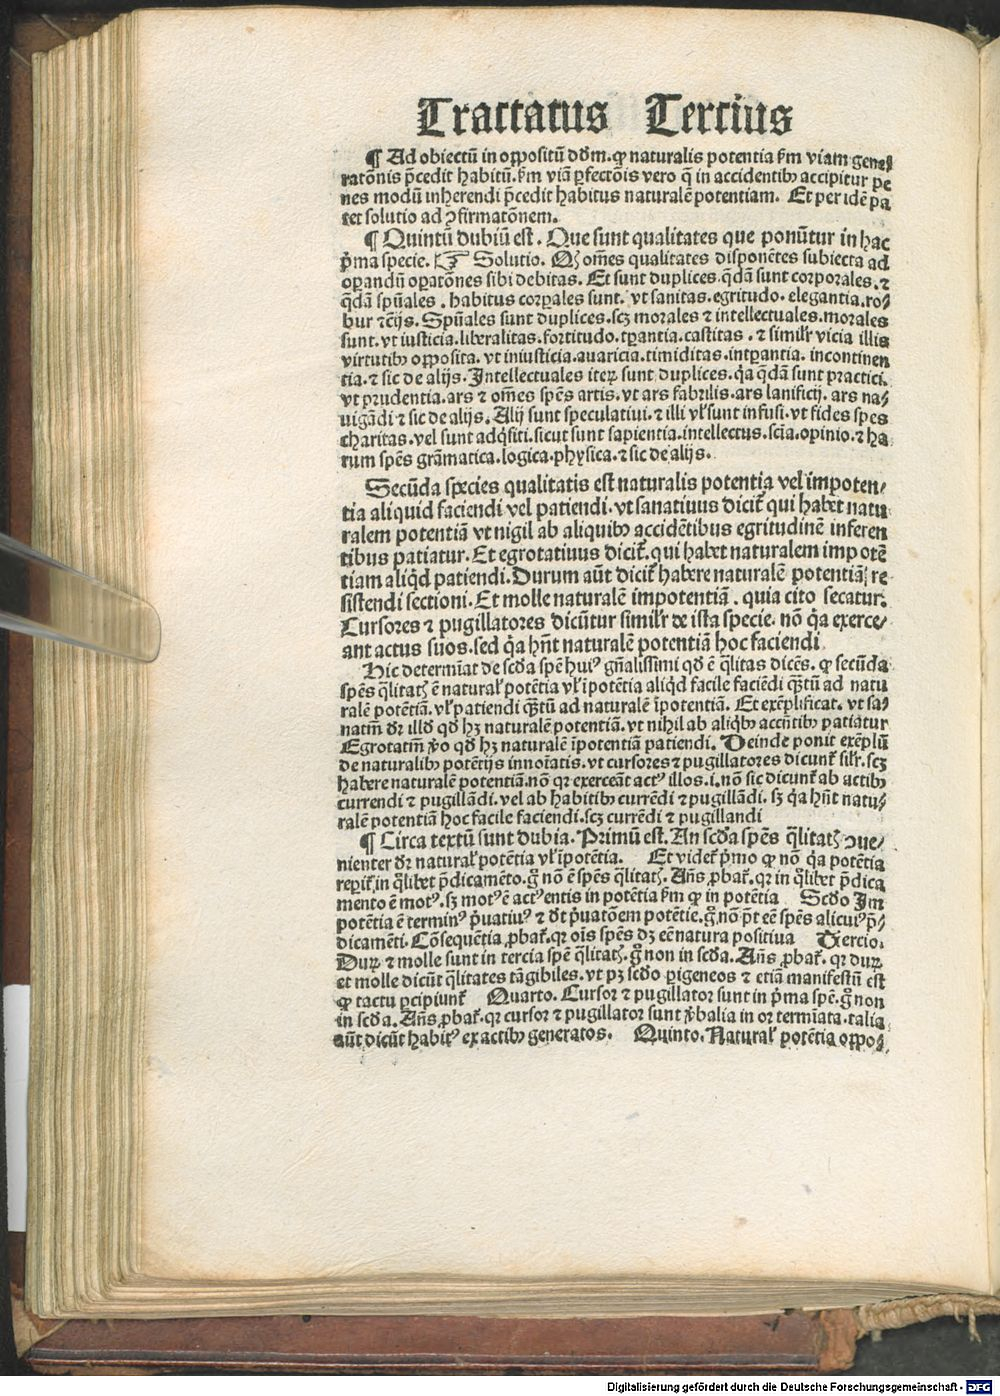 Tractatus Tercius
¶ Ad obiectū in oppositū dd̄m. ꝙ naturalis potentia fm̄ viam gene⸗
ratōnis p̄cedit habitū. fm̄ viā ꝑfectōis vero q̄ in accidentibꝰ accipitur pe
nes modū inherendi p̄cedit habitus naturalē potentiam. Et per idē pa
tet solutio ad ↄfirmatōnem.
¶ Quintū dubiū est. Que sunt qualitates que ponūtur in hac
pͥma specie. ☞ Solutio. Ꝙ om̄es qualitates disponētes subiecta ad
oꝑandū oꝑatōnes sibi debitas. Et sunt duplices. qͣdā sunt corporales. ⁊
qͣdā spūales. habitus corꝑales sunt. vt sanitas. egritudo. elegantia. ro⸗
bur ⁊cͣijs. Spūales sunt duplices. scꝫ morales ⁊ intellectuales. morales
sunt. vt iusticia. liberalitas. fortitudo. tꝑantia. castitas. ⁊ similr̄ vicia illis
virtutibꝰ opposita. vt iniusticia. auaricia. timiditas. intꝑantia. incontinen
tia. ⁊ sic de alijs. Intellectuales iteꝝ sunt duplices. qͥa qͣdā sunt practici.
vt prudentia. ars ⁊ om̄es spēs artis. vt ars fabrilis. ars lanificij. ars na⸗
uigādi ⁊ sic de alijs. Alij sunt speculatiui. ⁊ illi vl̓ sunt infusi. vt fides spes
charitas. vel sunt adqͥsiti. sicut sunt sapientia. intellectus. scīa. opinio. ⁊ ha
rum spēs grāmatica. logica. physica. ⁊ sic de alijs.
Secūda species qualitatis est naturalis potentia vel impoten⸗
tia aliquid faciendi vel patiendi. vt sanatiuus dicit᷑ qui habet natu
ralem potentiā vt nigil ab aliquibꝰ accidētibus egritudinē inferen
tibus patiatur. Et egrotatiuus dicit᷑. qui habet naturalem impotē
tiam aliqͥd patiendi. Durum aūt dicit᷑ habere naturalē potentiā re⸗
sistendi sectioni. Et molle naturalē impotentiā. quia cito secatur.
Cursores ⁊ pugillatores dicūtur similr̄ de ista specie. nō qͥa exerce⸗
ant actus suos. sed qͥa hn̄t naturalē potentiā hoc faciendi
Hic determīat de scd̓a spē huiꝰ gn̄alissimi qd̓ ē q̄litas dicēs. ꝙ secūda
spēs q̄litatꝭ ē natural̓ potētia vl̓ īpotētia aliqͥd facile faciēdi qͣꝫtū ad natu
ralē potētiā. vl̓ patiendi qͣꝫtū ad naturalē īpotētiā. Et exēplificat. vt sa⸗
natiuū dr̄ illd̓ qd̓ hꝫ naturalē potentiā. vt nihil ab aliqͥbꝰ accn̄tibꝰ patiatur
Egrotatiuū v̓o qd̓ hꝫ naturalē īpotentiā patiendi. Deinde ponit exēplū
de naturalibꝰ potētijs innoīatis. vt cursores ⁊ pugillatores dicunt᷑ silr̄. scꝫ
habere naturalē potentiā. nō qꝛ exerceāt actꝰ illos. i. nō sic dicunt᷑ ab actibꝰ
currendi ⁊ pugillādi. vel ab habitibꝰ currēdi ⁊ pugillādi. sꝫ qͥa hn̄t natu⸗
ralē potentiā hoc facile faciendi. scꝫ currēdi ⁊ pugillandi
¶ Circa textū sunt dubia. Primū est. An scd̓a spēs q̄litatꝭ ↄue⸗
nienter dr̄ natural̓ potētia vl̓ īpotētia. Et videt᷑ pͥmo ꝙ nō qͥa potētia
reperit᷑ in qͦlibet p̄dicamēto. gͦ nō ē spēs q̄litatꝭ. Añs ꝓbat᷑. qꝛ in qͦlibet p̄dica
mento ē motꝰ. sꝫ motꝰ ē actꝰ entis in potētia fm̄ ꝙ in potētia Scd̓o Im
potētia ē terminꝰ pͥuatiuꝰ ⁊ dt̓ pͥuatōem potētie. gͦ nō pn̄t eē spēs alicuiꝰ p̄⸗
dicamēti. Cōsequētia ꝓbat᷑. qꝛ oīs spēs dꝫ eē natura positiua Tercio.
Duꝝ ⁊ molle sunt in tercia spē q̄litatꝭ. gͦ non in scd̓a. Añs ꝓbat᷑. qꝛ duꝝ
et molle dicūt q̄litates tāgibiles. vt pꝫ scd̓o perigeneos ⁊ etiā manifestū est
ꝙ tactu ꝑcipiunt᷑ Quarto. Cursor ⁊ pugillator sunt in pͥma spē. gͦ non
in scd̓a. Añs ꝓbat᷑. qꝛ cursor ⁊ pugillator sunt v̓balia in or termīata. talia
aūt dicūt habitꝰ ex actibꝰ generatos. Quinto. Natural̓ potētia oppo⸗
Digitalisierung gefördert durch die Deutsche Forschungsgemeinschaft - DFG